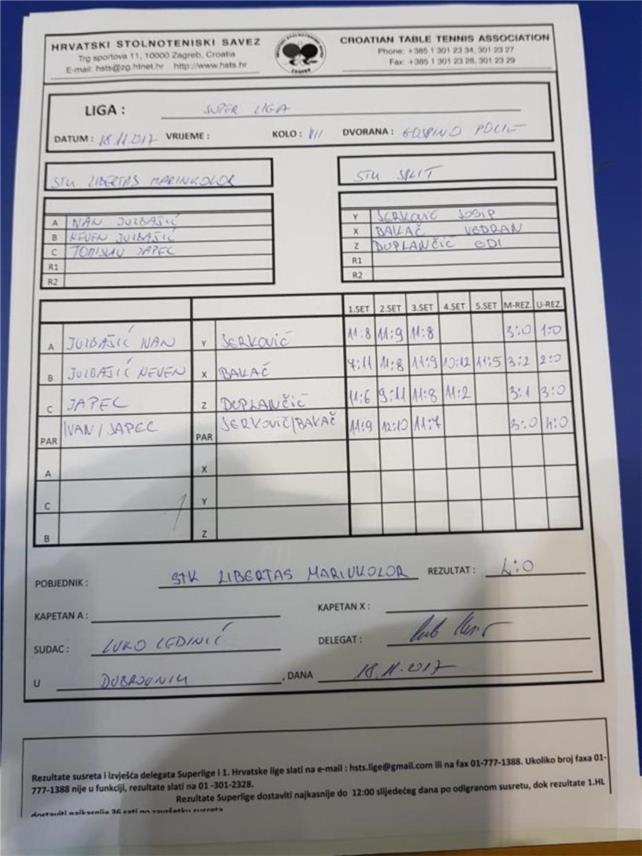 HRVATSKI STOLNOTENISKI SAVEZ
Trg sportova 11, 10000 Zagreb, Croatia
E-mail: hsts@zg.htnet.hr http://www.hsts.hr
CROATIAN TABLE TENNIS ASSOCIATION
Phone: +385 1 301 23 34, 301 23 27
Fax: +385 1 301 23 28, 301 23 29
LIGA : SUPER LIGA
DATUM : 18.11.2017 VRIJEME : KOLO : VII DVORANA : GOSPINO POLJE
STK LIBERTAS MARINKOLOR
STK SPLIT
A IVAN JUIBAŠIĆ
B NEVEN JUIBAŠIĆ
C TOMISLAV JAPEC
R1
R2
Y SERKOVIĆ JOSIP
X BAKAČ VEDRAN
Z DUPLANČIĆ EDI
R1
R2
1.SET 2.SET 3.SET 4.SET 5.SET M-REZ. U-REZ.
A JUIBAŠIĆ IVAN Y SERKOVIĆ 11:8 11:9 11:8 3:0 1:0
B JUIBAŠIĆ NEVEN X BAKAČ 7:11 11:8 11:9 10:12 11:5 3:2 2:0
C JAPEC Z DUPLANČIĆ 11:6 9:11 11:8 11:2 3:1 3:0
PAR IVAN/JAPEC PAR SERKOVIĆ/BAKAČ 11:9 12:10 11:7 3:0 4:0
A X
C Y
B Z
POBJEDNIK : STK LIBERTAS MARINKOLOR REZULTAT : 4:0
KAPETAN A : KAPETAN X :
SUDAC : LUKO LEDINIĆ DELEGAT :
U DUBROVNIK , DANA 18.11.2017
Rezultate susreta i izvješća delegata Superlige i 1. Hrvatske lige slati na e-mail : hsts.lige@gmail.com ili na fax 01-777-1388. Ukoliko broj faxa 01-
777-1388 nije u funkciji, rezultate slati na 01 -301-2328.
Rezultate Superlige dostaviti najkasnije do 12:00 slijedećeg dana po odigranom susretu, dok rezultate 1.HL
dostaviti najkasnije 36 sati po završetku susreta